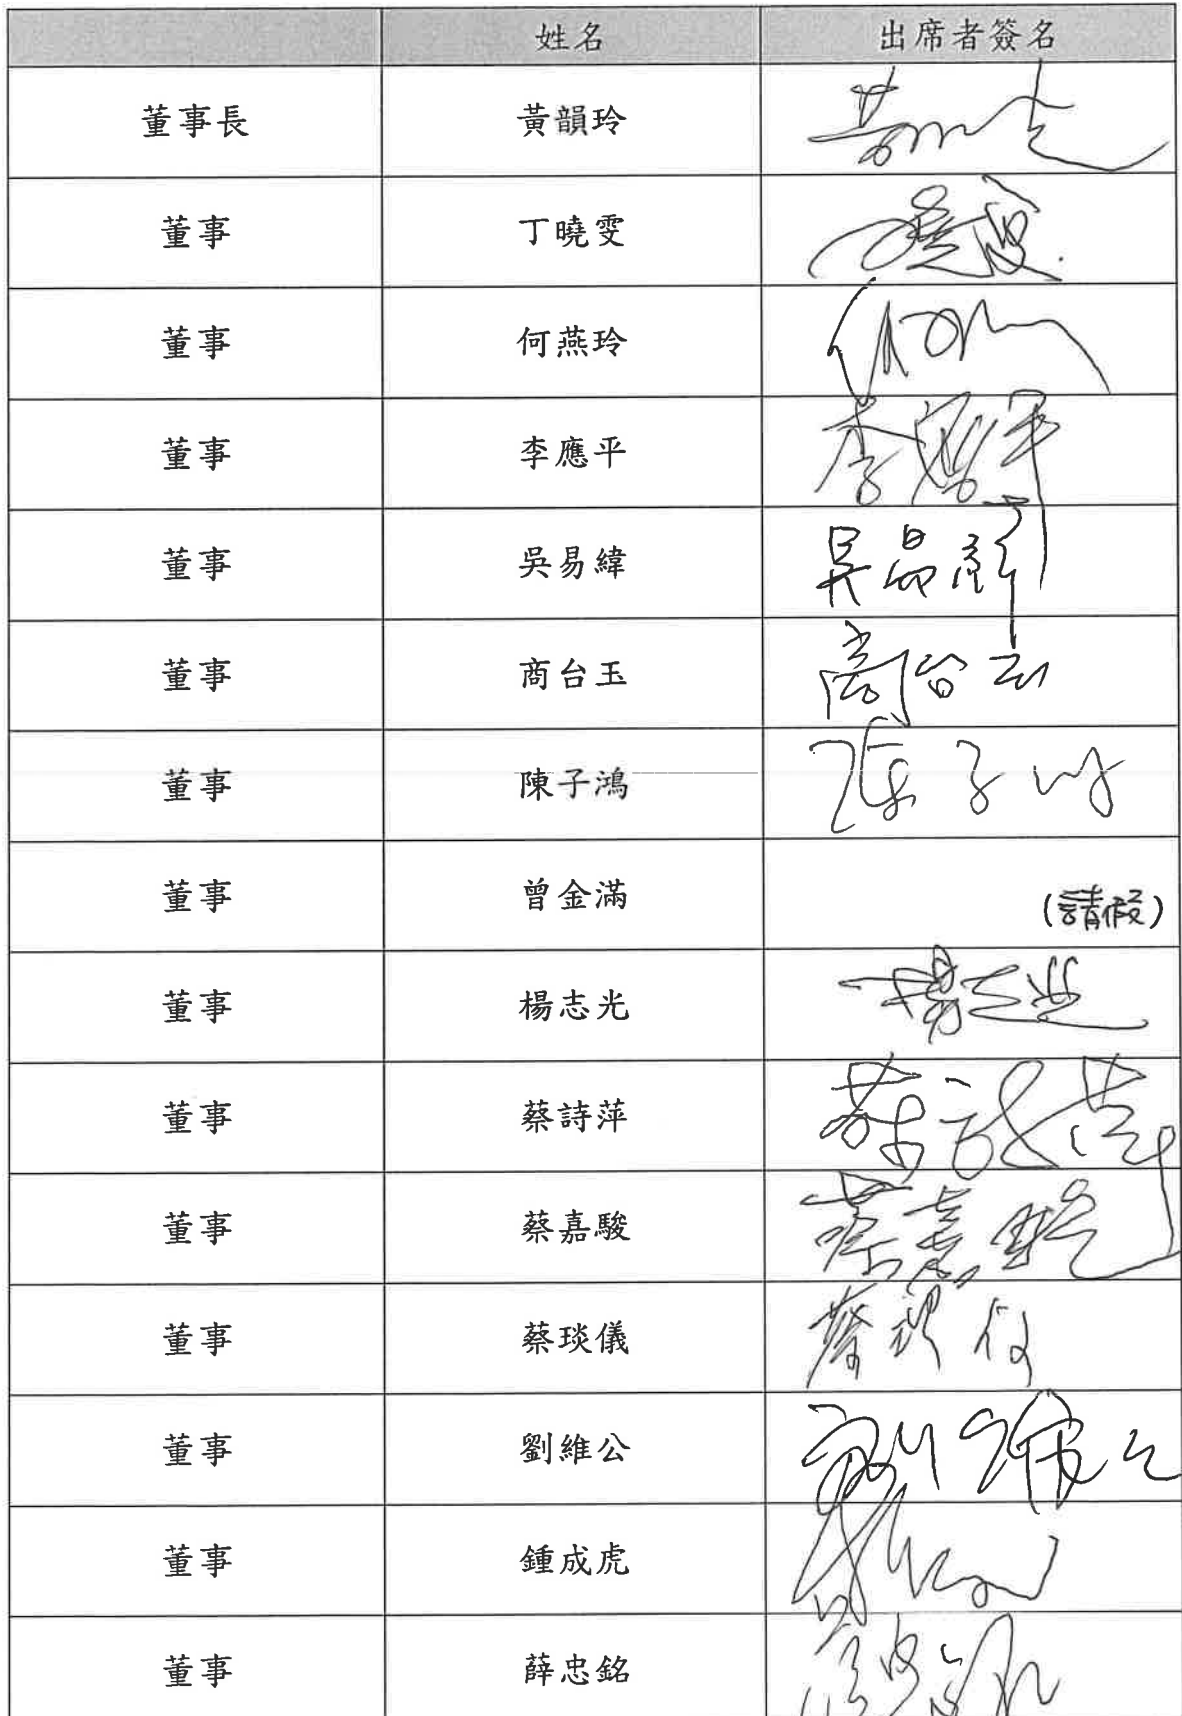 姓名 出席者簽名
董事長 黃韻玲
董事 丁曉雯
董事 何燕玲
董事 李應平 李應平
董事 吳易緯
董事 商台玉 商台玉
董事 陳子鴻 陳子鴻
董事 曾金滿 (請假)
董事 楊志光 楊志光
董事 蔡詩萍 蔡詩萍
董事 蔡嘉駿 蔡嘉駿
董事 蔡琰儀 蔡琰儀
董事 劉維公 劉維公
董事 鍾成虎
董事 薛忠銘